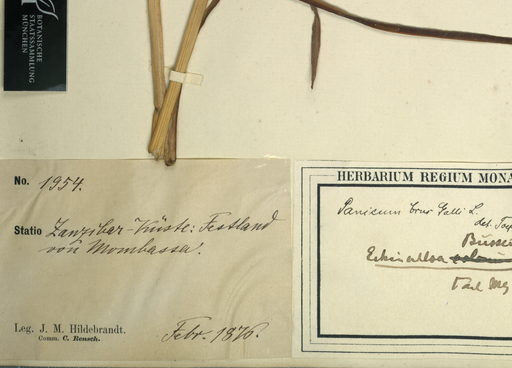 BOTANISCHE
STAATSSAMMLUNG
MÜNCHEN
No. 1954.
Statio Zanzibar-Küste: Festland
von Mombassa.
Leg. J. M. Hildebrandt.
Comm. C. Rensch.
Febr. 1876.
HERBARIUM REGIUM MONA
Panicum Crus Galli L.
det.
Busse
Echinochloa